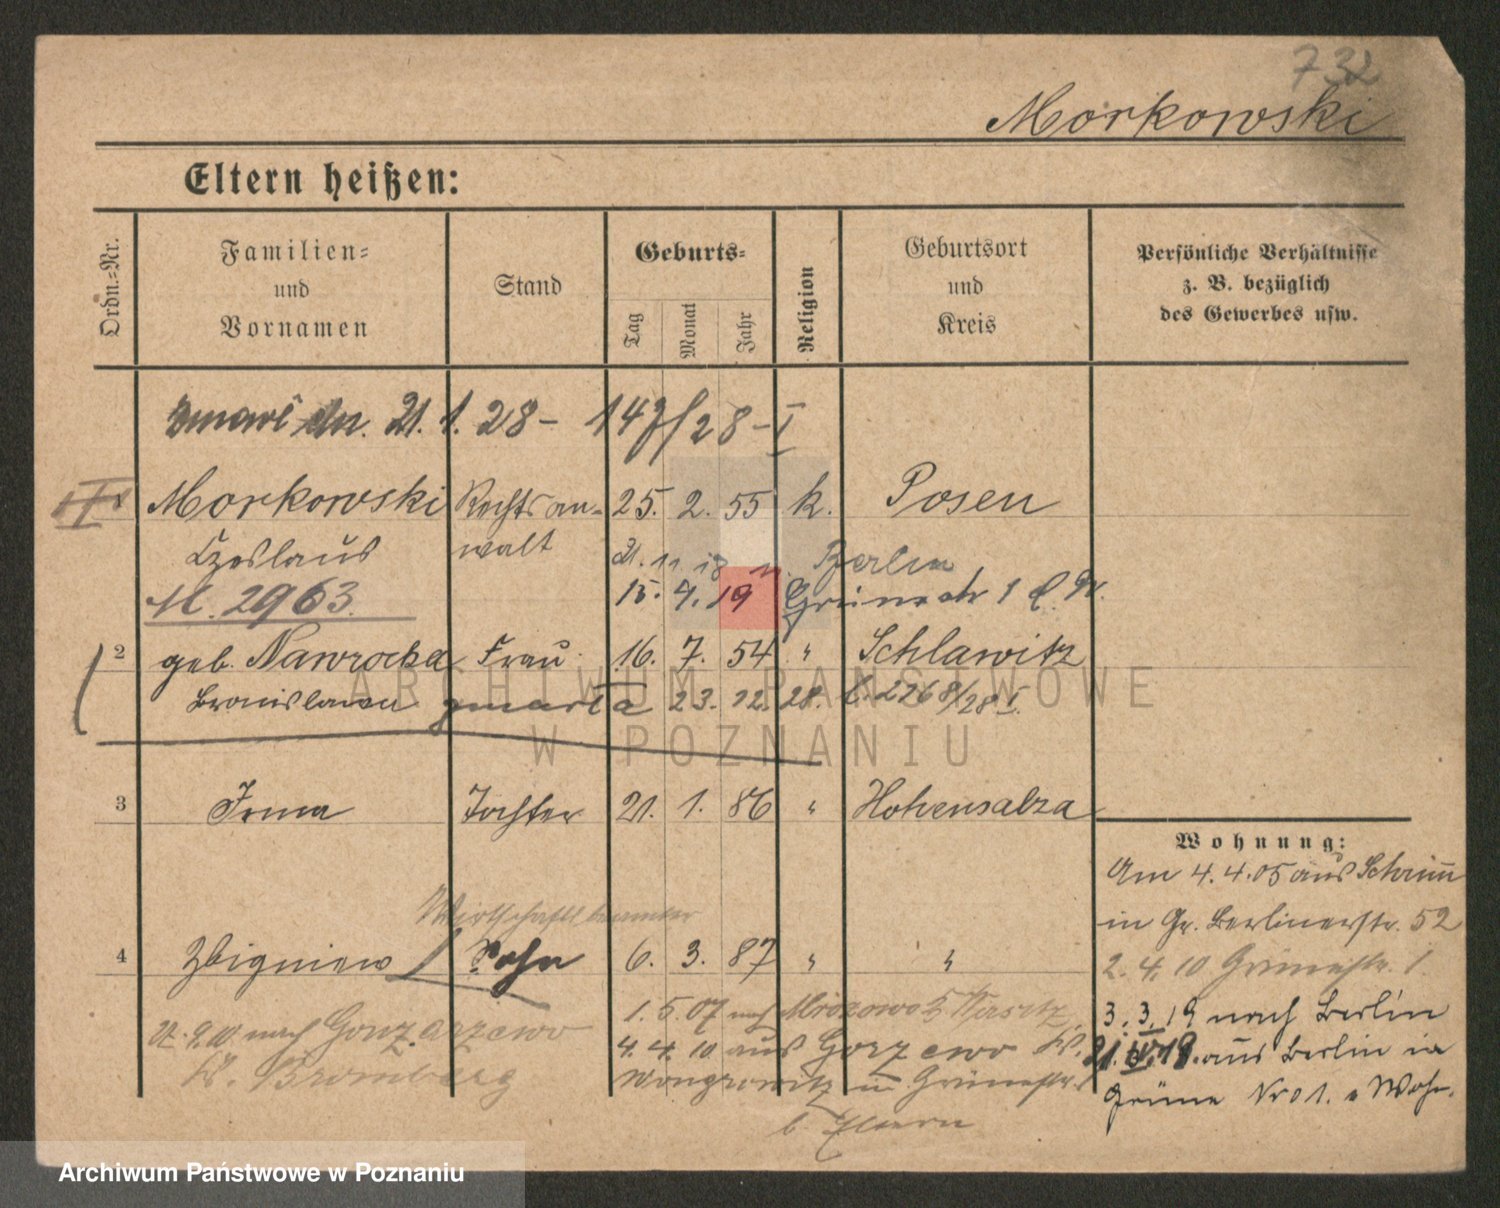 732
Morkowski
Eltern heißen:
Ordn.-Nr.
Familien- und Vornamen
Stand
Geburts-
Tag Monat Jahr
Religion
Geburtsort und Kreis
Persönliche Verhältnisse z. B. bezüglich des Gewerbes usw.
zmarł dn. 21. 1. 28 - 147/28 - I
Morkowski Rechtsan- 25. 2. 55 k. Posen
Czeslaus walt 21. 11. 18 v. Berlin
M. 2963. 15. 4. 19
2 geb. Nawrocka Frau 16. 7. 54 " Schlawitz
Bronislawa zmarła 23. 12. 28. 2268/28 I.
ARCHIWUM PAŃSTWOWE
W POZNANIU
3 Irma Tochter 21. 1. 86 " Hohensalza
Wohnung:
Am 4. 4. 05 aus Schrimm
in Gr. Berlinerstr. 52
2. 4. 10 Grünestr. 1.
3. 3. 19 nach Berlin
aus Berlin in
Grüne No 1. Wohn.
Wirtschaftsbeamter
4 Zbigniew Sohn 6. 3. 87 " "
1. 5. 07 nach Mrozowo Wirsitz
nach Gonzarzewo
Kr. Bromberg
4. 4. 10 aus Gorzewo Kr.
Wongrowitz in Grünestr. 1
b. Eltern
Archiwum Państwowe w Poznaniu